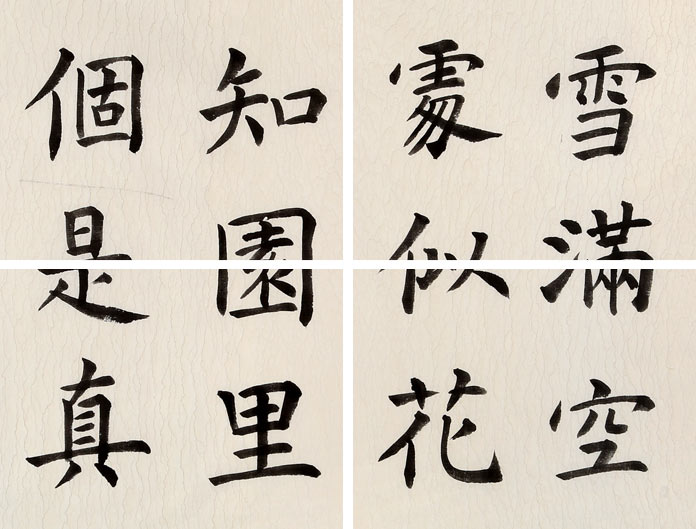 雪滿空
處似花
知園里
個是真